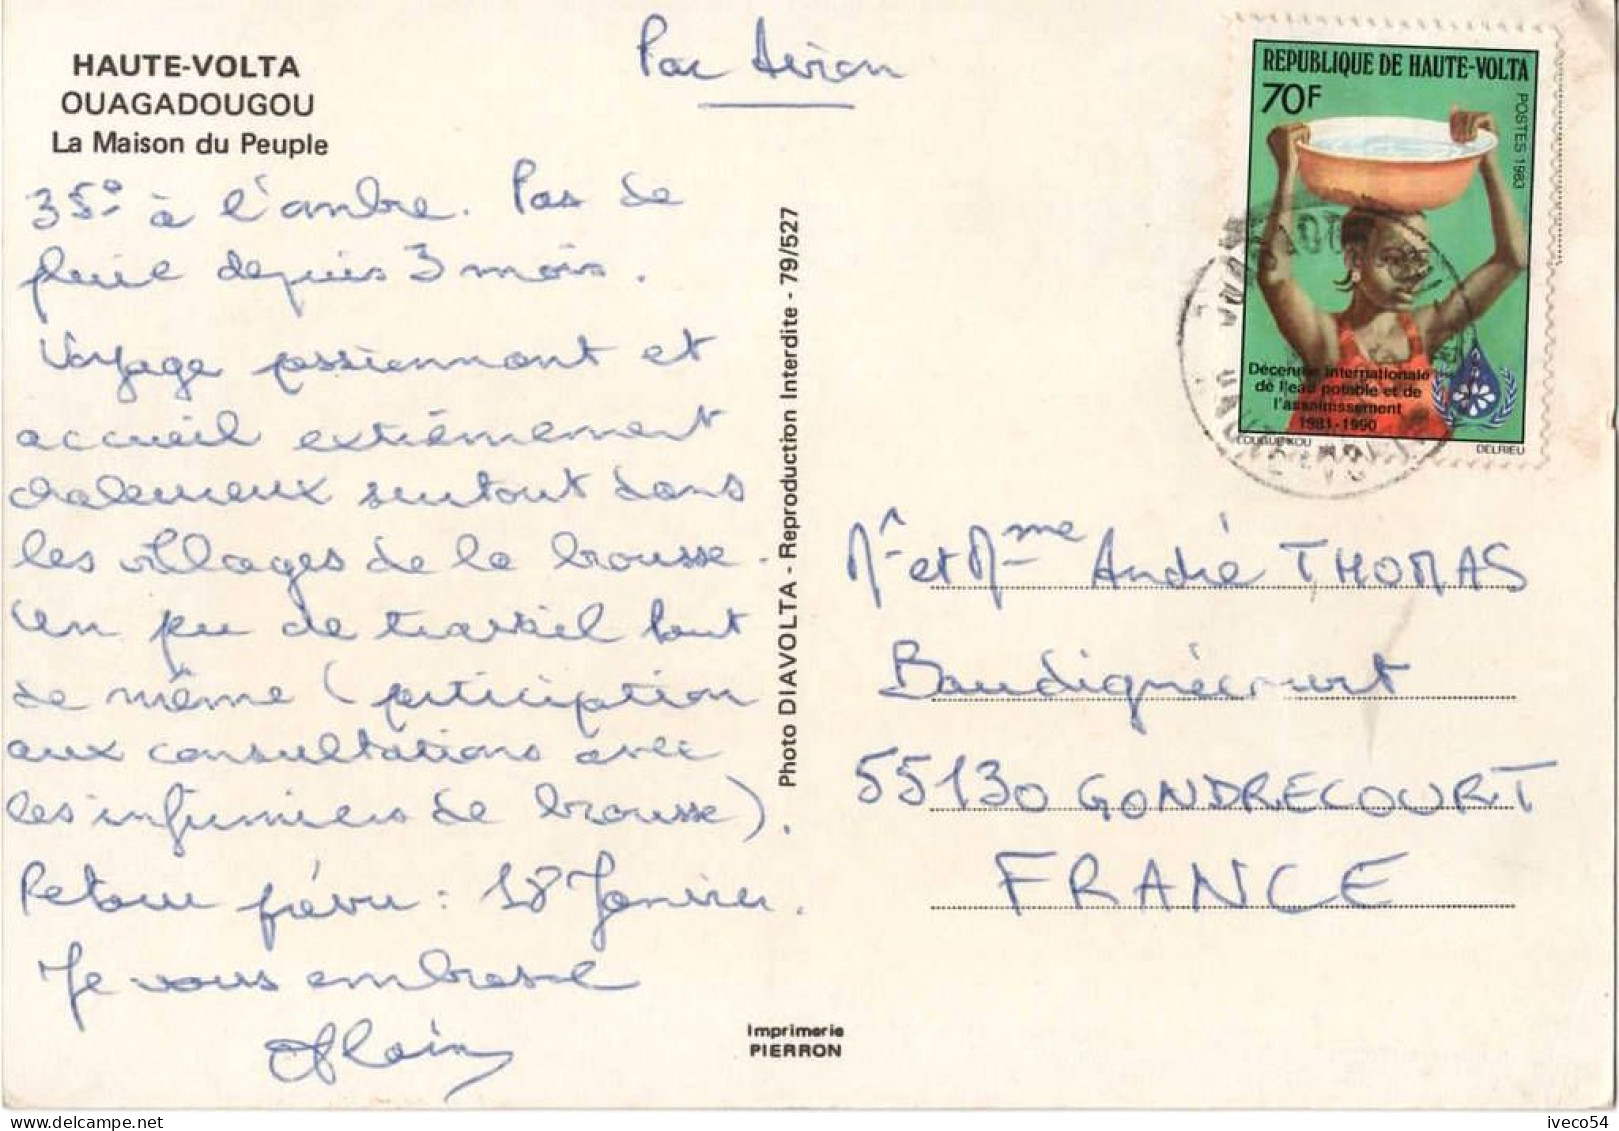 HAUTE-VOLTA
OUAGADOUGOU
La Maison du Peuple
Par Avion
REPUBLIQUE DE HAUTE-VOLTA
70F
POSTES 1983
Décennie internationale
de l'eau potable et de
l'assainissement
1981-1990
DELRIEU
35° à l'ombre. Pas de
pluie depuis 3 mois.
Voyage passionnant et
accueil extrêmement
chaleureux surtout dans
les villages de la brousse.
Un peu de travail tout
de même (participation
aux consultations avec
les infirmiers de brousse).
Retour prévu : 18 Janvier.
Je vous embrasse
Alain
Photo DIAVOLTA - Reproduction Interdite - 79/527
Mr et Mme André THOMAS
Baudignécourt
55130 GONDRECOURT
FRANCE
Imprimerie
PIERRON
iveco54